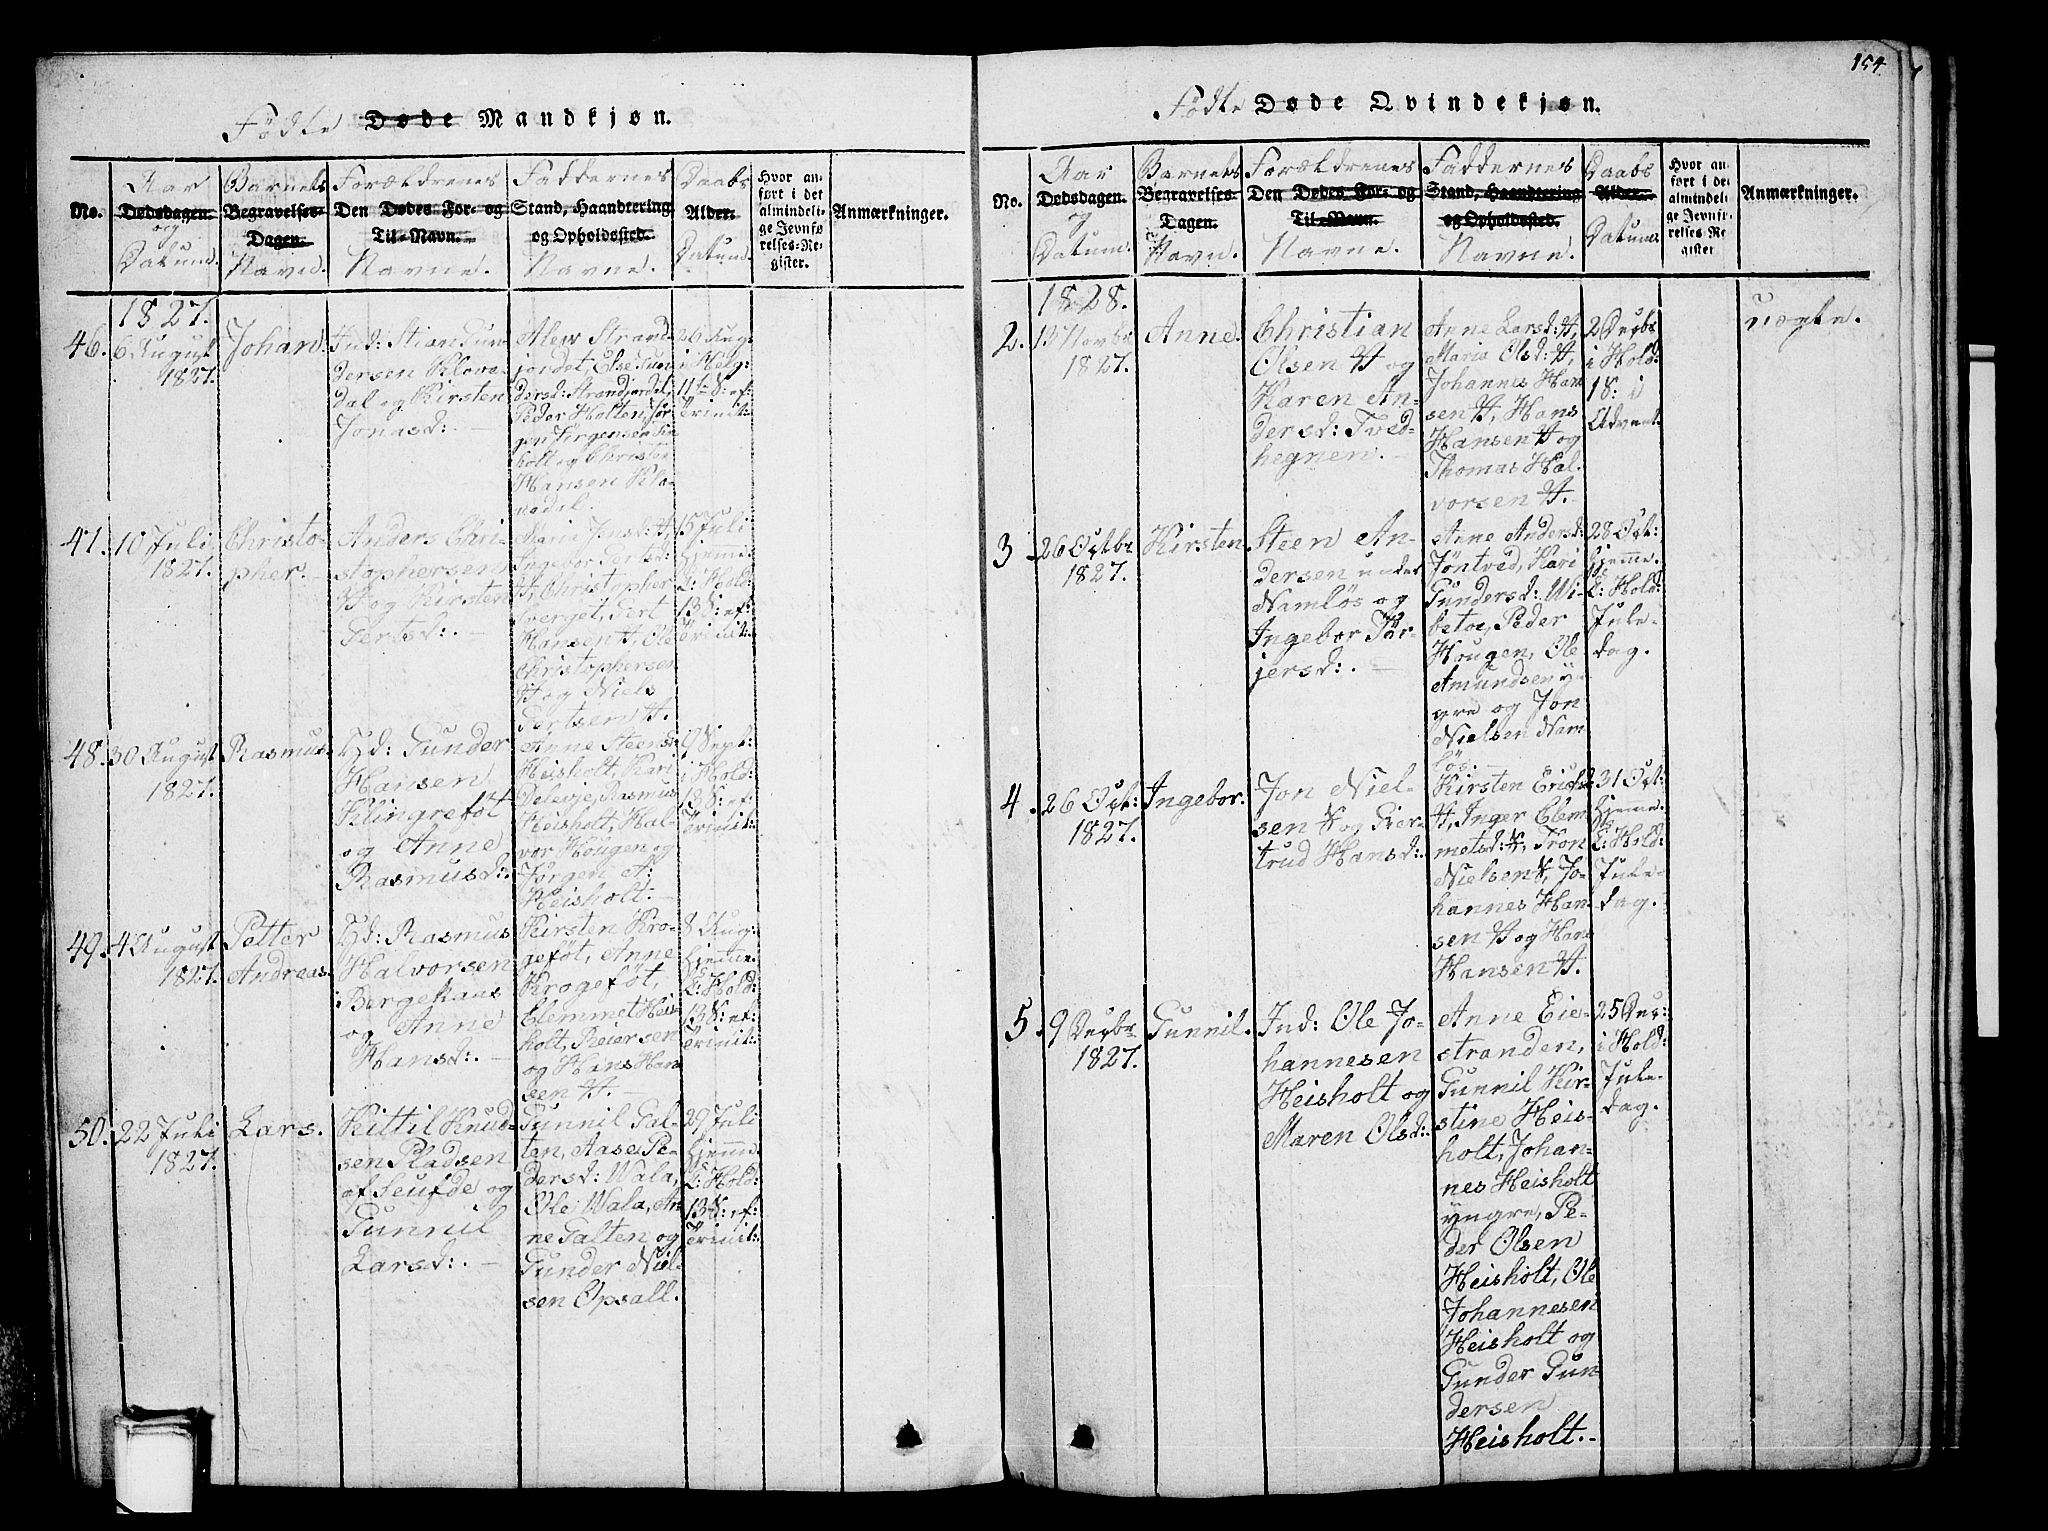 154.
Fødte Døde Mandkjøn.
No.
Aar
Dødsdagen.
og
Datum.
Barnets
Begravelses-
Dagen.
Navn.
Forældrenes
Den Dødes For- og
Til-Navn.
Navne.
Faddernes
Stand, Haandtering
og Opholdssted.
Navne.
Daabs
Alder.
Datum.
Hvor an-
ført i det
almindeli-
ge Jevnfø-
relses-Re-
gister.
Anmærkninger.
1827.
46.
6 August
1827.
Johan.
Ind: Stian Gun-
dersen Klova-
dal og Kirsten
Jonasd:. -
Alew Strand-
jordet, Else Gun-
dersd: Strandjordet,
Peder Holten, Jör-
gen Jörgensen
holt og Christen
Hansen Klo-
vadal.
26 Aug:
i Helg:
11te S: ef:
Trinit:
47.
10 Juli
1827.
Christo-
pher.
Anders Chri-
stophersen
H og Kirsten
Gertsd:. -
Marie Jensd: H,
Ingebor Gertsd:
H, Christopher
Sverget, Gert
Hansen H, Ole
Christophersen
H og Niels
Gertsen H.
15 Juli
hjemme.
E: Hold:
13 S: ef:
Trinit:
48.
30 August
1827.
Rasmus.
Hd: Gunder
Hansen
Klingrefót
og Anne
Rasmusd:.
Anne Steensd:
Heisholt, Kari
Delevje, Rasmus
Heisholt, Hal-
vor Hougen og
Jörgen A:
Heisholt. -
9 Sept:
i Hold:
13 S: ef:
Trinit:
49.
4 August
1827.
Petter
Andreas.
Hd: Rasmus
Halvorsen
Bergekaas
og Anne
Hansd:. -
Kirsten Kro-
gefót, Anne
Krogefót,
Clemmet Heis-
holt, Reiersen
og Hans Han-
sen H. -
8 Aug:
hjemme.
E: Hold:
13 S: ef:
Trinit:
50.
22 Juli
1827.
Lars.
Kittil Knud-
sen Pladsen
af Seufde og
Gunnil
Larsd:. -
Gunnil Gal-
ten, Aase Pe-
dersd: Wala,
Ole Wala, An-
ne Galten og
Gunder Niel-
sen Opsall.
29 Juli
hjemme.
E: Hold:
13 S: ef:
Trinit:
Fødte Døde Qvindekjøn.
No.
Aar
Dødsdagen.
og
Datum.
Barnets
Begravelses-
Dagen.
Navn.
Forældrenes
Den Dødes For- og
Til-Navn.
Navne.
Faddernes
Stand, Haandtering
og Opholdssted.
Navne.
Daabs
Alder.
Datum.
Hvor an-
ført i de
almindeli-
ge Jevnfø-
relses-Re-
gister
Anmærkninger.
1828.
2.
13 Novbr
1827.
Anne.
Christian
Olsen H og
Karen An-
dersd: Tved-
hegnen. -
Anne Larsd: H,
Maria Olsd: H,
Johannes Han-
sen H, Hans
Hansen H og
Thomas Hal-
vorsen H.
2 Decbr
i Hold:
1 S: i
Advent:
uægte.
3.
26 Octbr
1827.
Kirsten.
Steen An-
dersen under
Namlös og
Ingebor Tör-
jersd:. -
Anne Andersd:
Jöntved, Kari
Gundersd: Wi-
betoe, Peder
Hougen, Ole
Amundsen yn-
gre og Jon
Nielsen Nam-
lös. -
28 Oct:
hjemme.
E: Hold:
Jule-
dag.
4.
26 Oct:
1827.
Ingebor.
Jon Niel-
sen H og Gier-
trud Hansd:.
Kirsten Ericksd:
H, Inger Clem-
metsd: H, Tron
Nielsen H, Jo-
hannes Han-
sen H og Hans
Hansen H.
31 Oct:
hjemme.
E: Hold:
Jule-
dag.
5.
9 Decbr
1827.
Gunnil.
Ind: Ole Jo-
hannesen
Heisholt og
Maren Olsd:.
Anne Eie-
stranden,
Gunnil Kir-
stine Heis-
holt, Johan-
nes Heisholt
yngre, Pe-
der Olsen
Heisholt, Ole
Johannesen
Heisholt og
Gunder Gun-
dersen
Heisholt.-
25 Dec:
i Hold:
Jule-
dag.